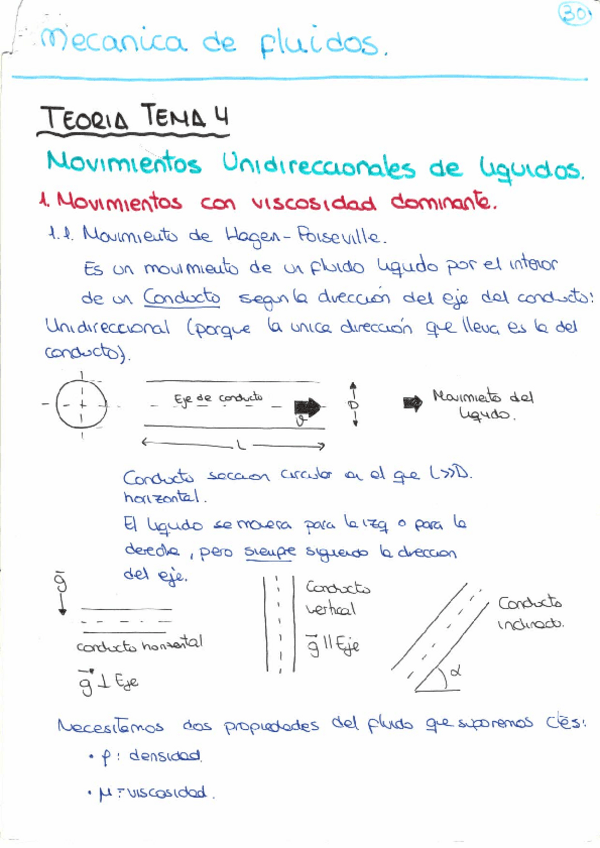 30
Mecanica de fluidos.
TEORIA TEMA 4
Movimientos Unidireccionales de liquidos.
1. Movimientos con viscosidad dominante.
1.1. Movimiento de Hagen-Poiseville.
Es un movimiento de un fluido liquido por el interior
de un Conducto segun la dirección del eje del conducto:
Unidireccional (porque la unica dirección que lleva es la del
conducto).
Eje de conducto
v
D
Movimiento del
liquido.
L
Conducto seccion circular en el que L>>D.
horizontal.
El liquido se movera para la izq o para la
derecha, pero siempre siguiendo la direccion
del eje.
g⃗
conducto horizontal
g⃗ ⊥ Eje
Conducto
vertical
g⃗ || Eje
Conducto
inclinado.
α
Necesitamos dos propiedades del fluido que suponemos ctes:
• ρ: densidad.
• μ = viscosidad.